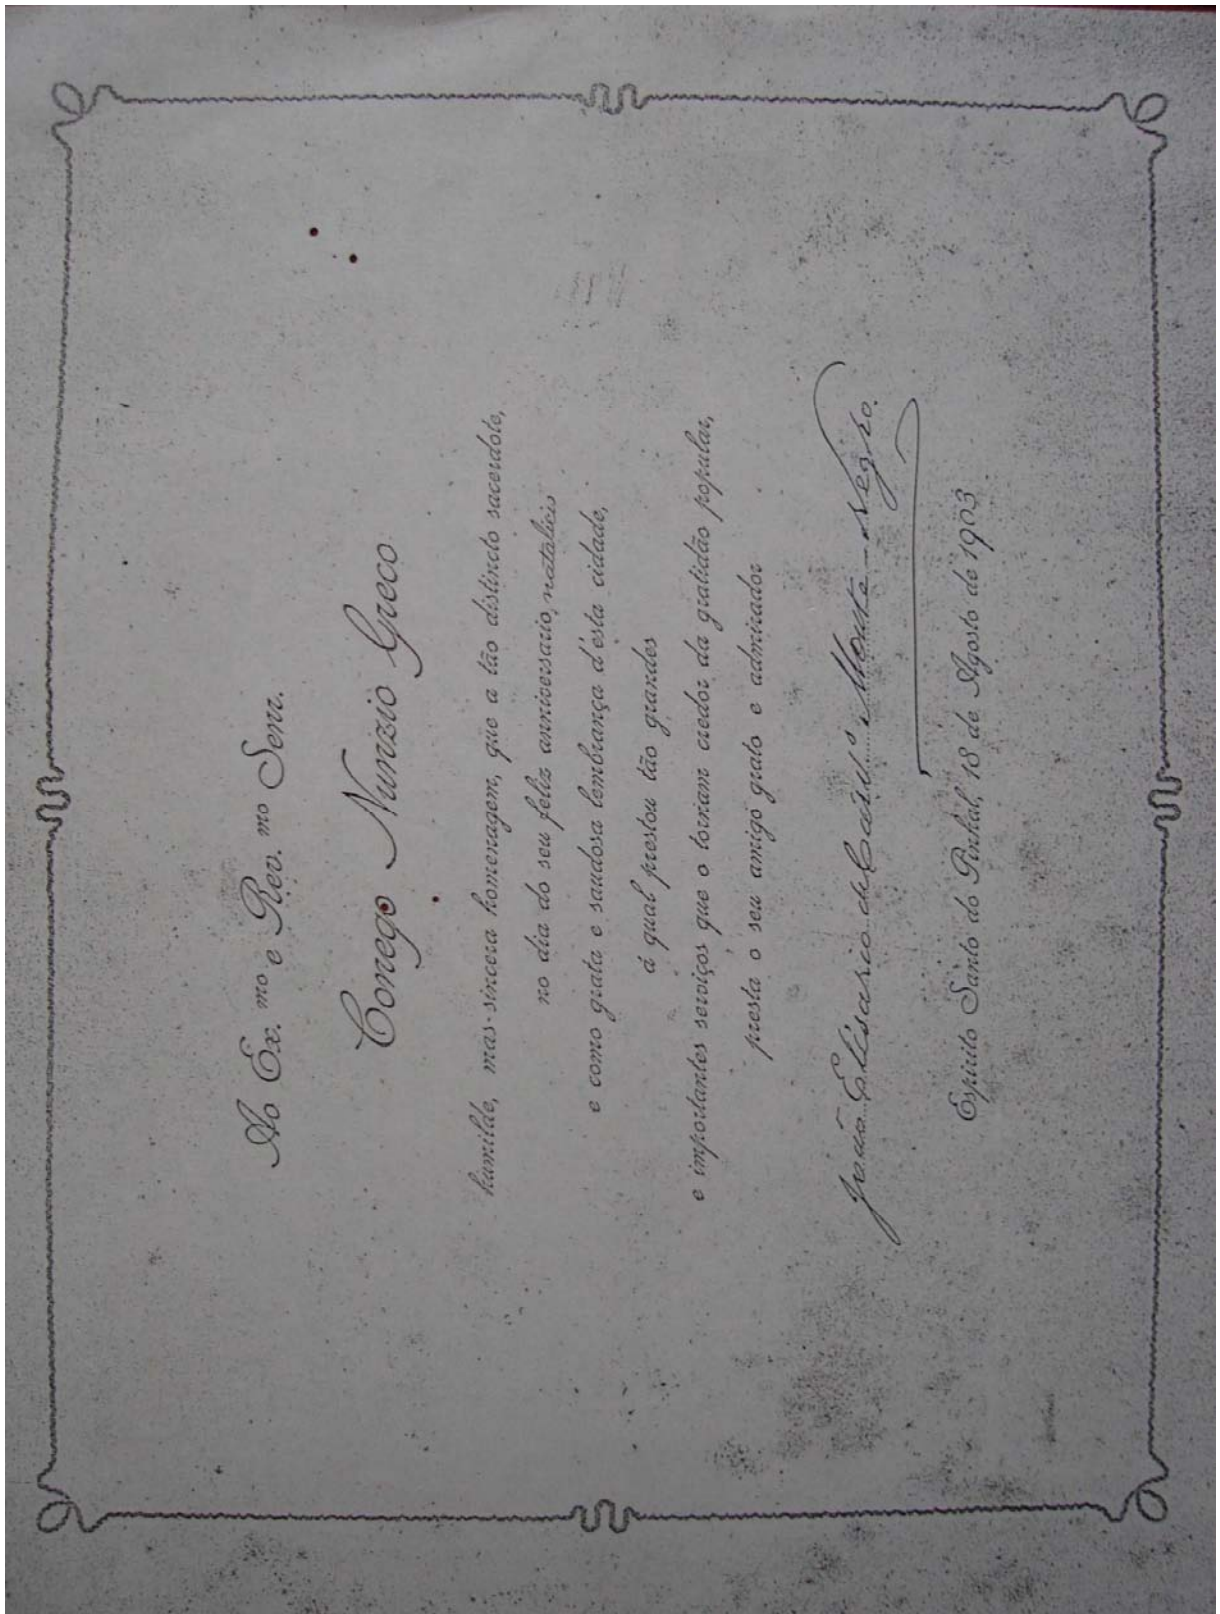 Ao Ex.mo e Rev.mo Senr.
Conego Nunzio Greco
humilde, mas sincera homenagem, que a tão distincto sacerdote,
no dia do seu feliz anniversario, natalicio
e como grata e saudosa lembrança d'esta cidade,
á qual prestou tão grandes
e importantes serviços que o tornam credor da gratidão popular,
presta o seu amigo grato e admirador
João Elisario de Carv.o Monte-Negro.
Espirito Santo do Pinhal, 18 de Agosto de 1903